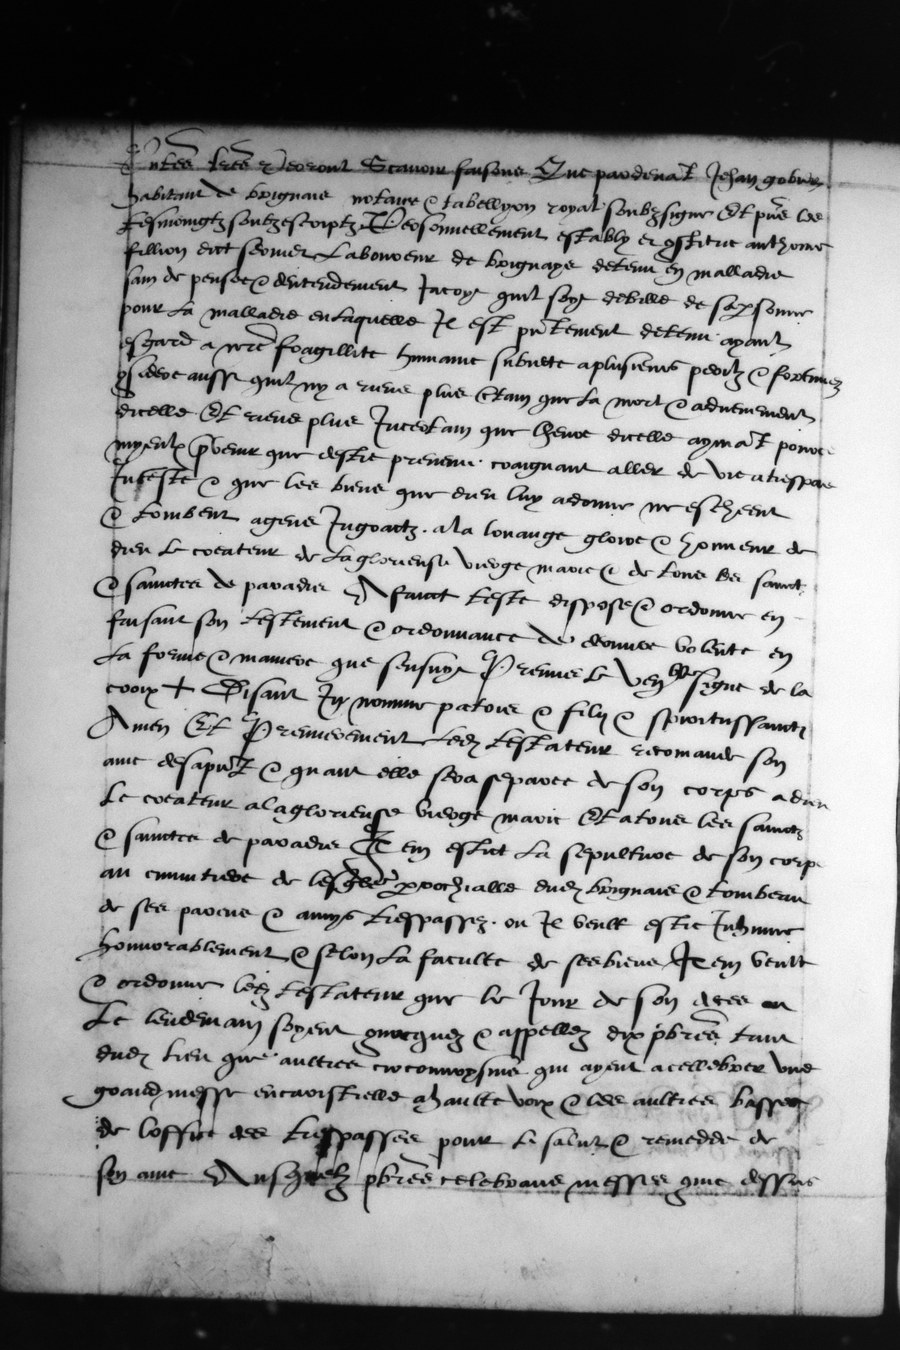 pntes lres verront Scavoir faisons Que pardevat Jehan gobier
habitant de brignais notaire & tabellyon royal soubzsigne Et pns les
tesmoingtz soubzescriptz Personnellement estably et gstitue anthoine
fillion dict Laboureur de brignays detenu en malladie
sain de pensee & dentendement Jacoyt quil soyt debille de sa psonne
pour La malladie en laquelle Il est pntement detenu ayant
esgard a nre fragillite humaine subiecte a plusieurs perilz & fortunes
gsidere aussi quil ny a riens plus Certain que La mort & advenement
dicelle Et riens plus Incertain que lheure dicelle aymat pource
myeulx pvenir que destre prevenu craignant aller de vie a trespas
Inteste & que les biens que dieu luy a donne ne escheent
& tombent a gens Ingratz a la louange gloire & honneur de
dieu Le createur de La glorieuse vierge marie & de tous les sainctz
& sainctes de paradis A faict teste dispose & ordonne en
faisant son testement & ordonnance de derniere volente en
La forme & maniere que sensuyt Premier Le ven ble signe de la
croix + Disant In nomine patris & filii & spiritussancti
Amen Et Premierement Ledz testateur recomande son
ame des a pnt & quant elle sera separee de son corps a dieu
Le createur a la glorieuse vierge marie Et a tous les sainctz
& sainctes de paradis Item eslict La sepulture de son corps
au cimitiere de lesglise prochialle dudz brignais & tombeau
de ses parens & amys trespassez ou Il veult estre Inhume
honnorablement & selon La faculte de ses biens Item veult
& ordonne ledz testateur que le Jour de son deces ou
Le lendemain soyent gvocquez & appellez dix pbres tant
dudz lieu que aultres circonvoysins qui ayent a cellebrer une
grand messe a haulte voix & les aultres basses
de loffice des trespasses pour le salut & remedde de
son ame Ausquelz pbres celebrans messes gme dessus